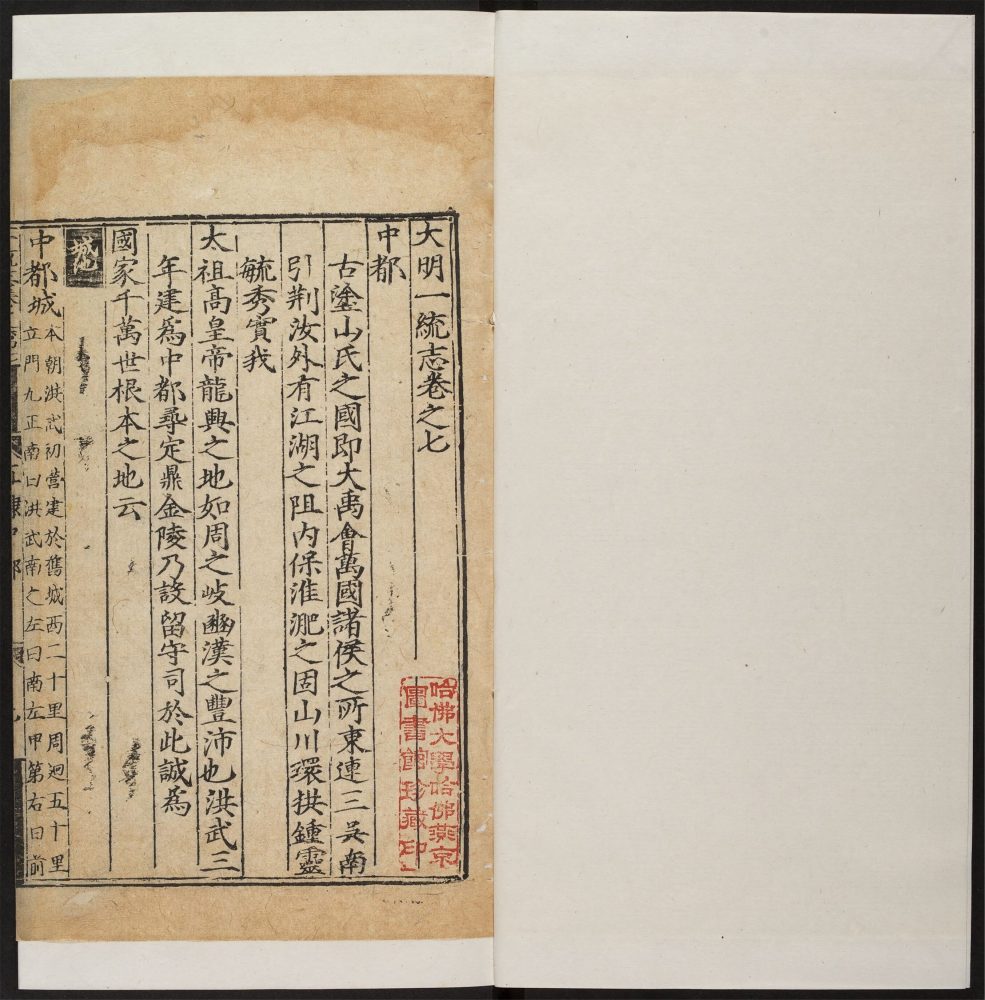 大明一統志卷之七
中都
古塗山氏之國即大禹會萬國諸侯之所東連三吳南
引荆汝外有江湖之阻内保淮淝之固山川環拱鍾靈
毓秀實我
太祖高皇帝龍興之地如周之岐豳漢之豐沛也洪武三
年建為中都尋定鼎金陵乃設留守司於此誠為
國家千萬世根本之地云
城池
中都城本朝洪武初營建於舊城西二十里周迴五十里
立門九正南曰洪武南之左曰南左甲第右曰前
哈佛大學哈佛燕京
圖書館珍藏印